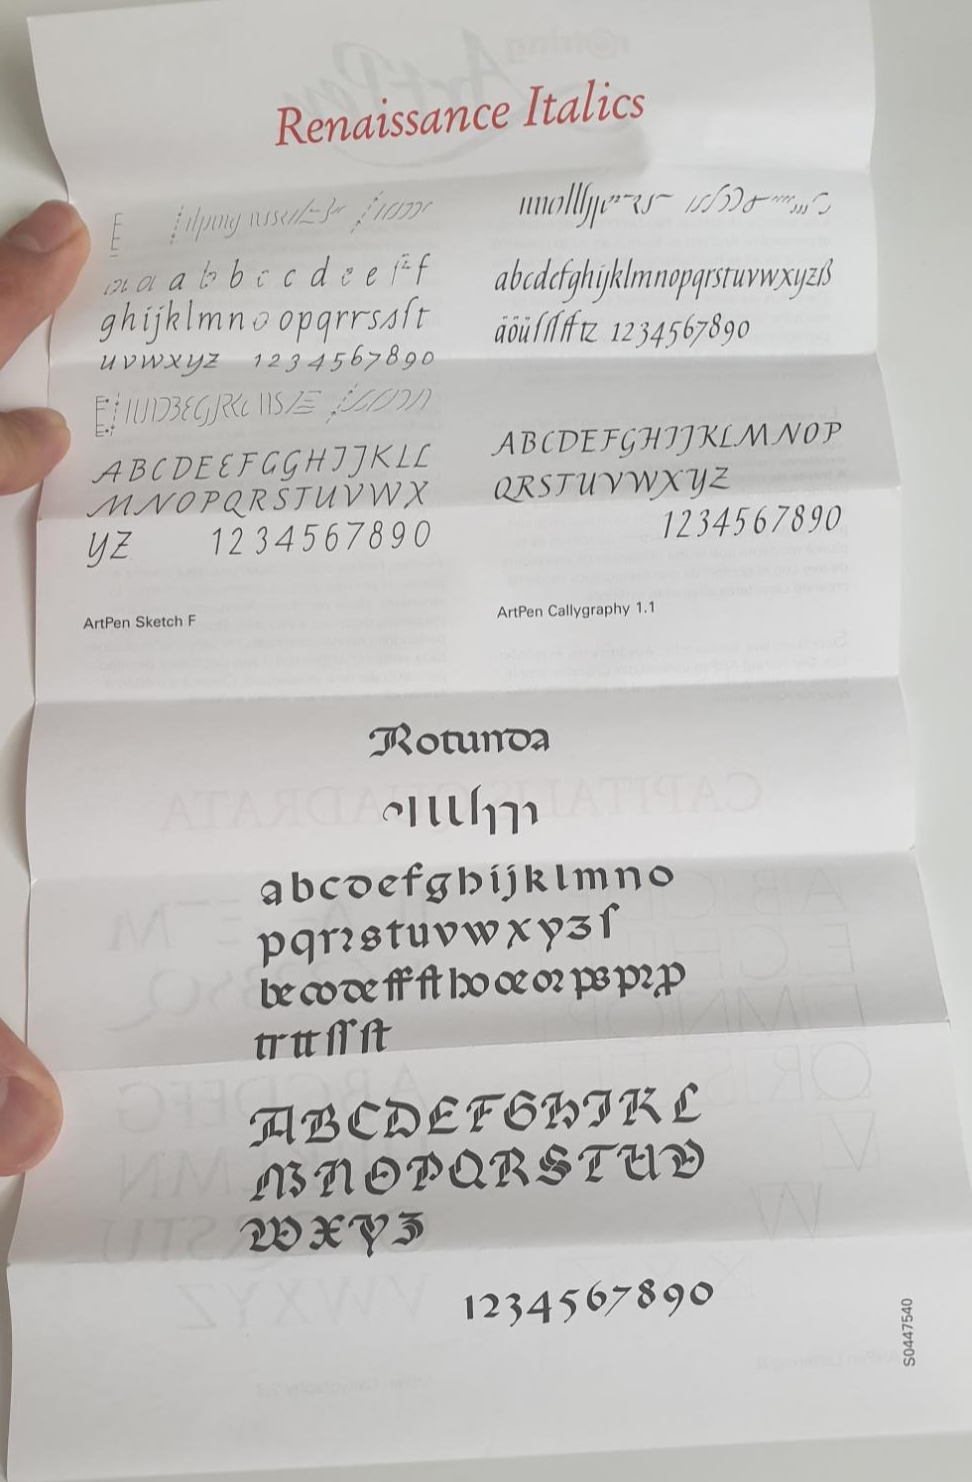 Renaissance Italics
a a a b b c c d e e e f f
ghijklmno opqrrssſt
uvwxyz 1234567890
ABCDEEFGGHIJKLL
MNOPQRSTUVWX
YZ 1234567890
ArtPen Sketch F
abcdefghijklmnopqrstuvwxyzß
äöü 1234567890
ABCDEFGHIJJKLMNOP
QRSTUVWXYZ
1234567890
ArtPen Callygraphy 1.1
Rotunda
abcdefghijklmno
pqrꝛstuvwxyzſ
ABCDEFGHIKL
MNOPQRSTUV
WXYZ
1234567890
S0447540